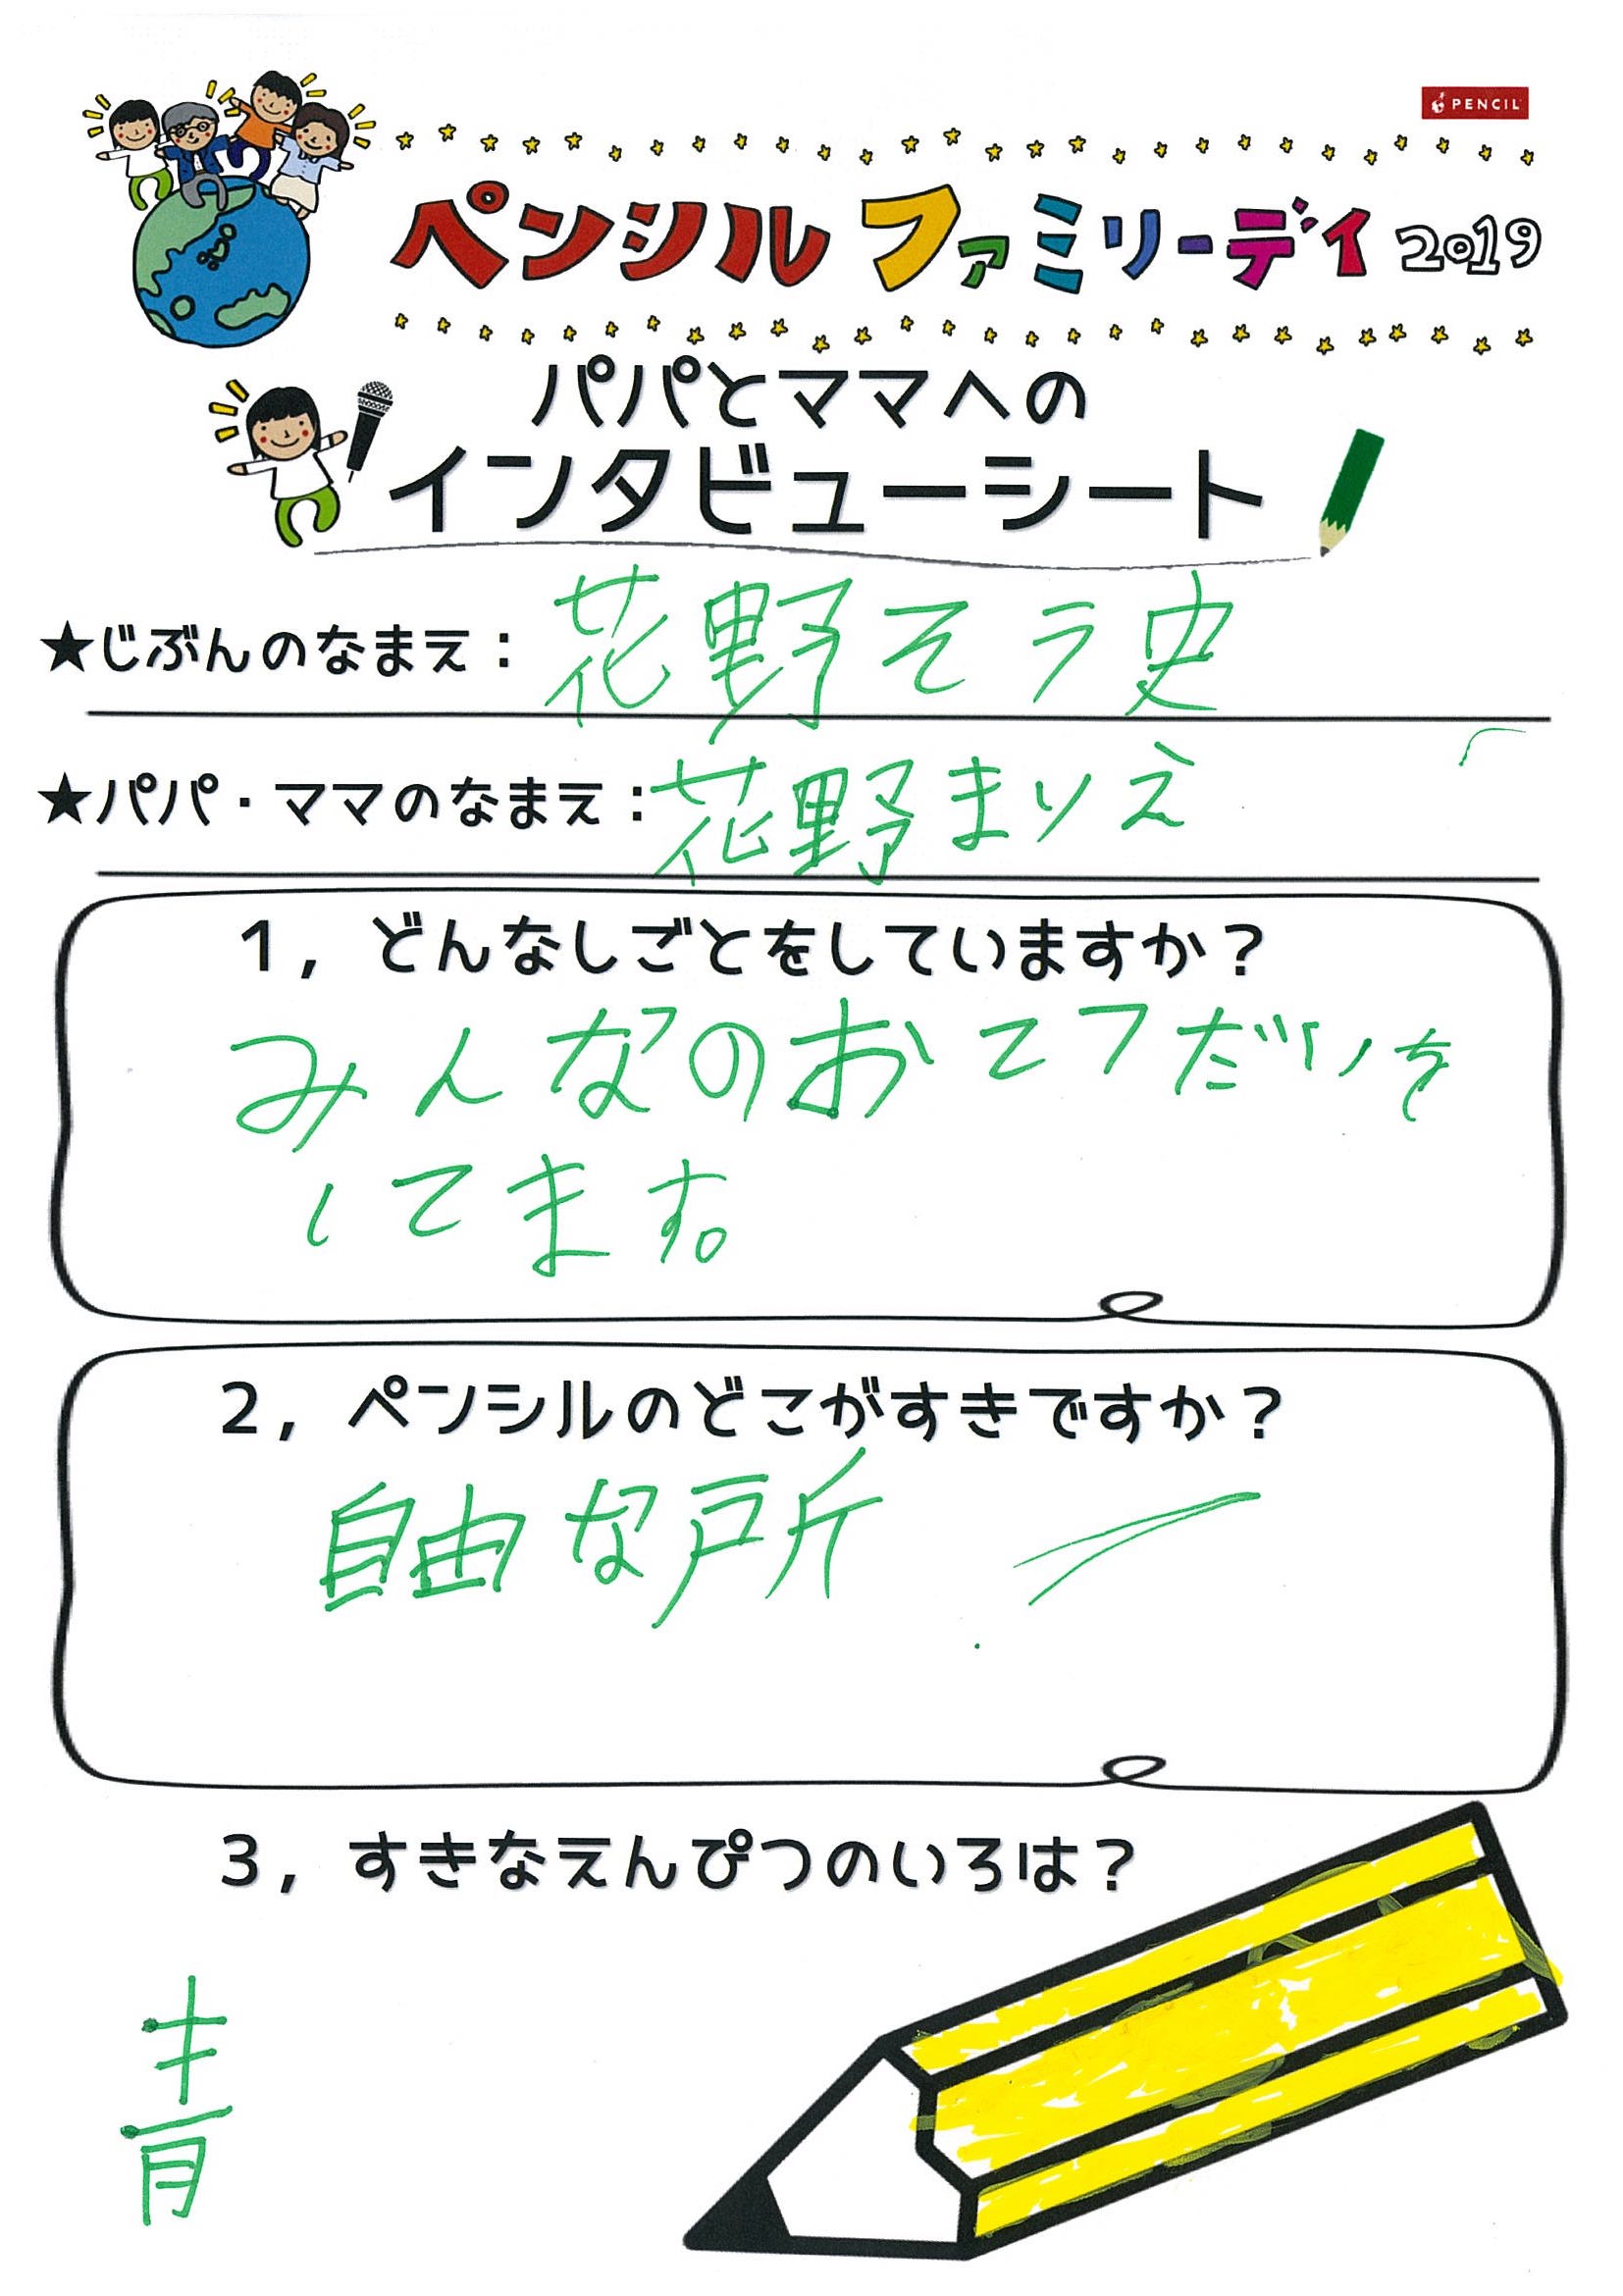 PENCIL
ペンシル ファミリーデイ 2019
パパとママへの
インタビューシート
★じぶんのなまえ：花野そう史
★パパ・ママのなまえ：花野まりえ
1，どんなしごとをしていますか？
みんなのおてつだいを
してます。
2，ペンシルのどこがすきですか？
自由な所
3，すきなえんぴつのいろは？
青